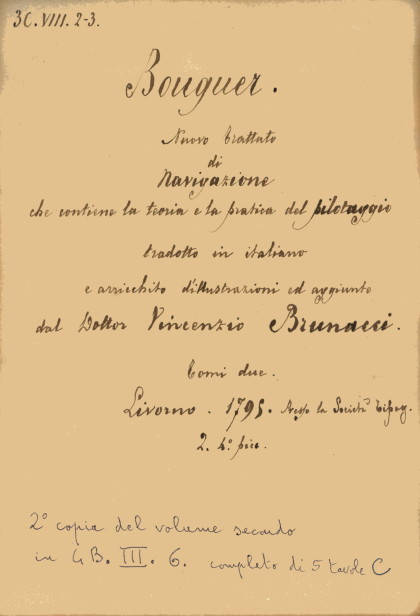 3C.VIII. 2-3.
Bouguer.
Nuovo trattato
di
Navigazione
che contiene la teoria e la pratica del pilotaggio
tradotto in italiano
e arricchito d'illustrazioni ed aggiunto
dal Dottor Vincenzio Brunacci.
Tomi due.
Livorno. 1795. Presso la Società Tipog.
2. 4º picc.
2º copia del volume secondo
in 4 B. III. 6. completo di 5 tavole C